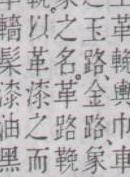 革鞔輿巾車
玉路、金路、象
之名。革路鞔
以革漆之而
髹漆油黑